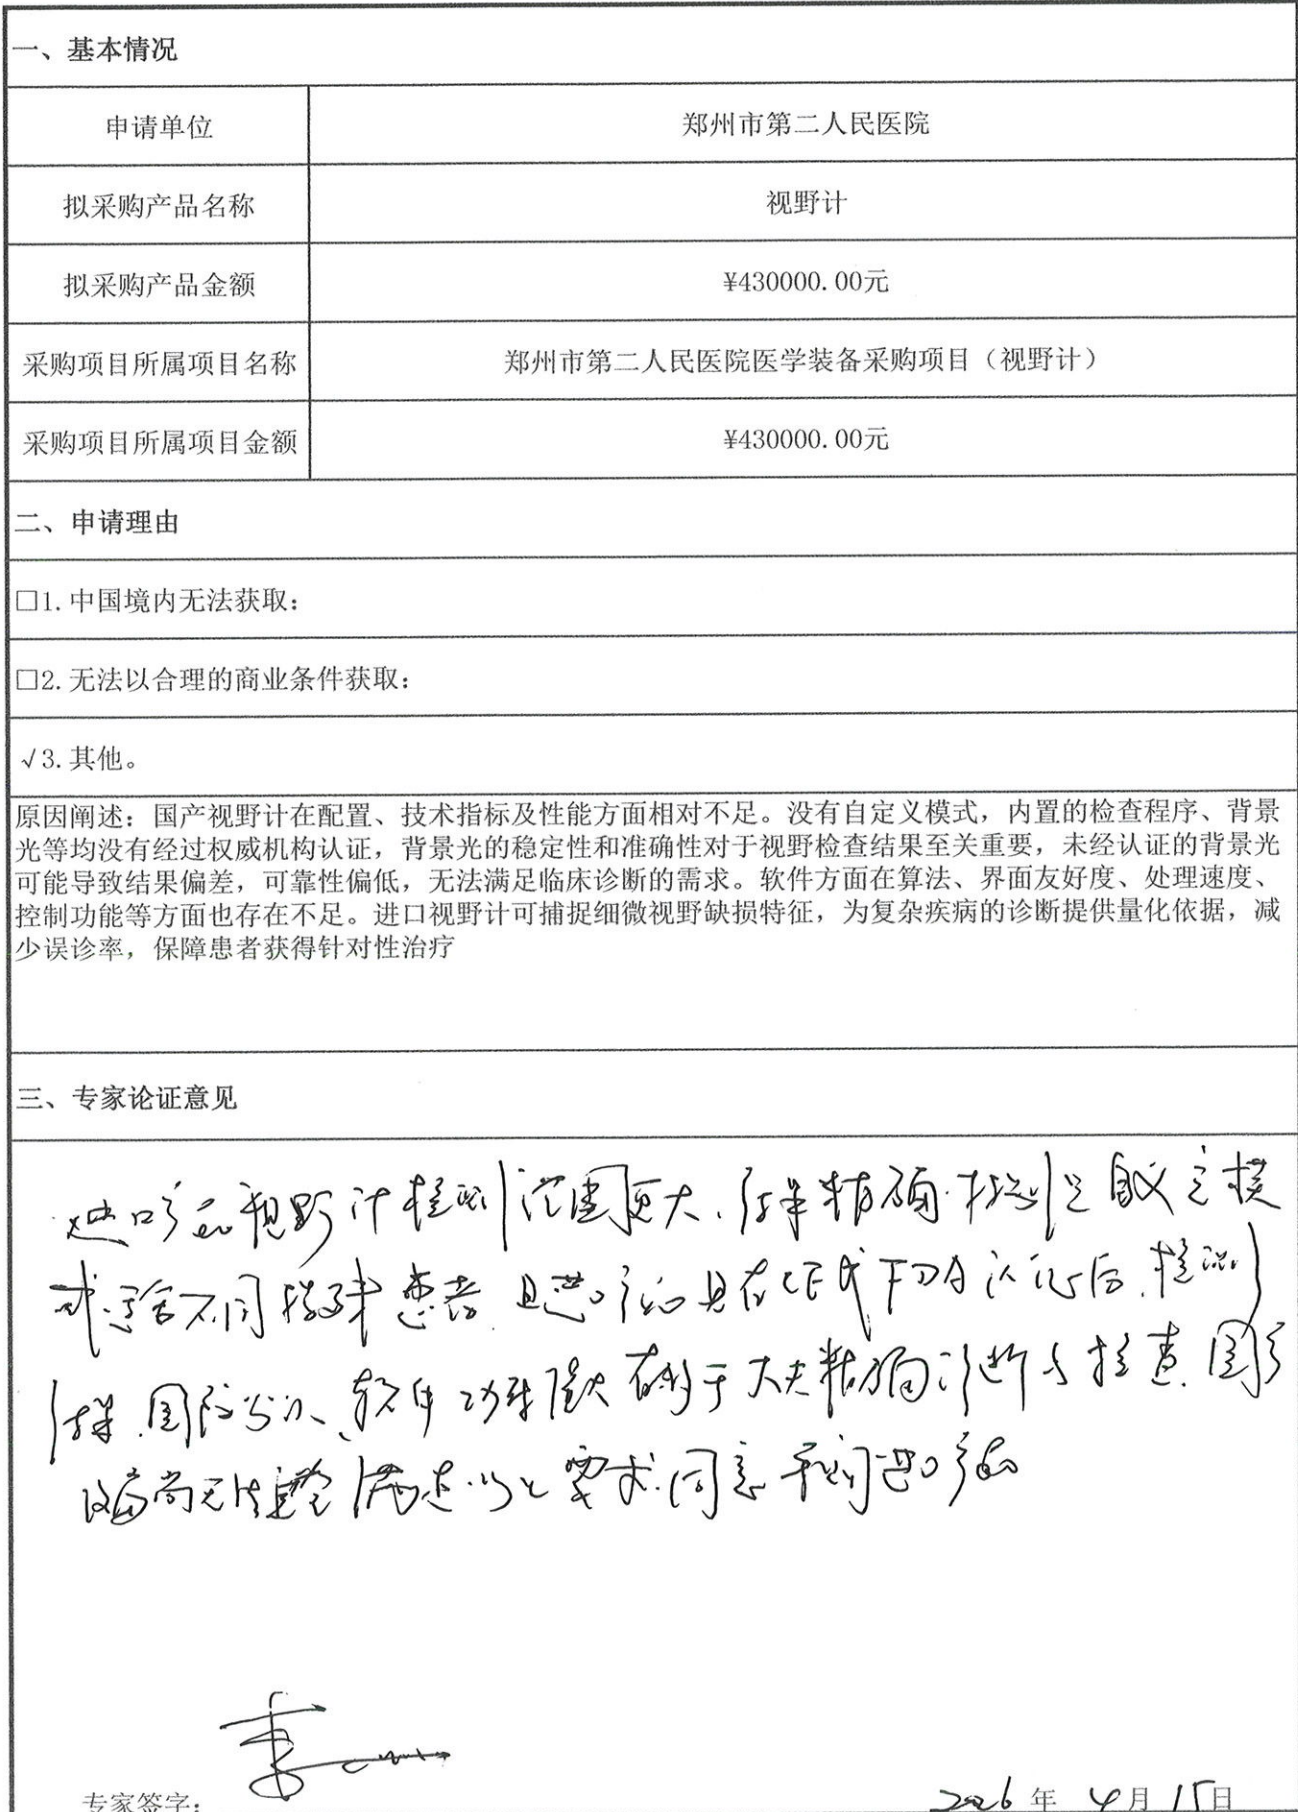 一、基本情况
申请单位 郑州市第二人民医院
拟采购产品名称 视野计
拟采购产品金额 ¥430000.00元
采购项目所属项目名称 郑州市第二人民医院医学装备采购项目（视野计）
采购项目所属项目金额 ¥430000.00元
二、申请理由
□1.中国境内无法获取：
□2.无法以合理的商业条件获取：
√3.其他。
原因阐述：国产视野计在配置、技术指标及性能方面相对不足。没有自定义模式，内置的检查程序、背景
光等均没有经过权威机构认证，背景光的稳定性和准确性对于视野检查结果至关重要，未经认证的背景光
可能导致结果偏差，可靠性偏低，无法满足临床诊断的需求。软件方面在算法、界面友好度、处理速度、
控制功能等方面也存在不足。进口视野计可捕捉细微视野缺损特征，为复杂疾病的诊断提供量化依据，减
少误诊率，保障患者获得针对性治疗
三、专家论证意见
进口产品视野计检测范围更大、结果精确.模
式适合不同特殊患者.且进口产品具有CE或FDA认证后.检测
结果.国际公认、软件功能强大有利于大夫精确诊断与检查.国产
设备尚无法完全满足以上要求.同意采购进口产品
专家签字：
2026年4月15日